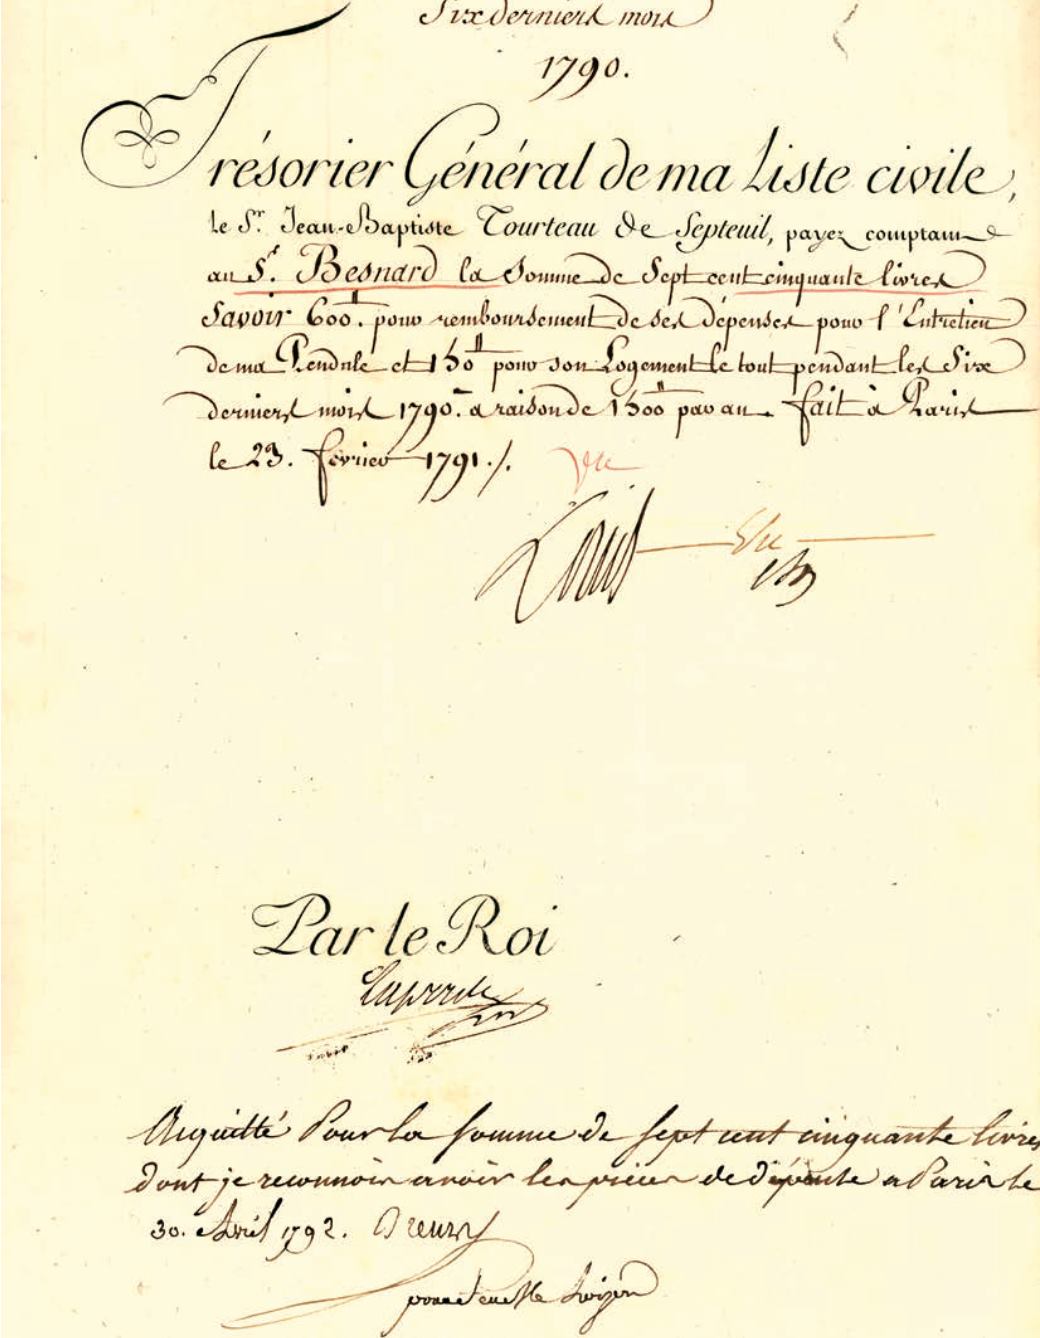 Six derniers mois
1790.
Trésorier Général de ma Liste civile,
le Sr. Jean-Baptiste Tourteau de Septeuil, payez comptant
au Sr. Besnard la Somme de Sept cent cinquante livres
Savoir 600ᵗᵗ. pour remboursement de ses dépenses pour l'Entretien
de ma Pendule et 150ᵗᵗ pour son Logement le tout pendant les Six
derniers mois 1790. a raison de 1500ᵗᵗ par an. fait à Paris
le 23. février 1791./.
Vu
Louis
Par le Roi
Laporte
Acquitté Pour la somme de sept cent cinquante livres
dont je reconnois avoir les pieces de dépense a Paris le
30. Avril 1792.